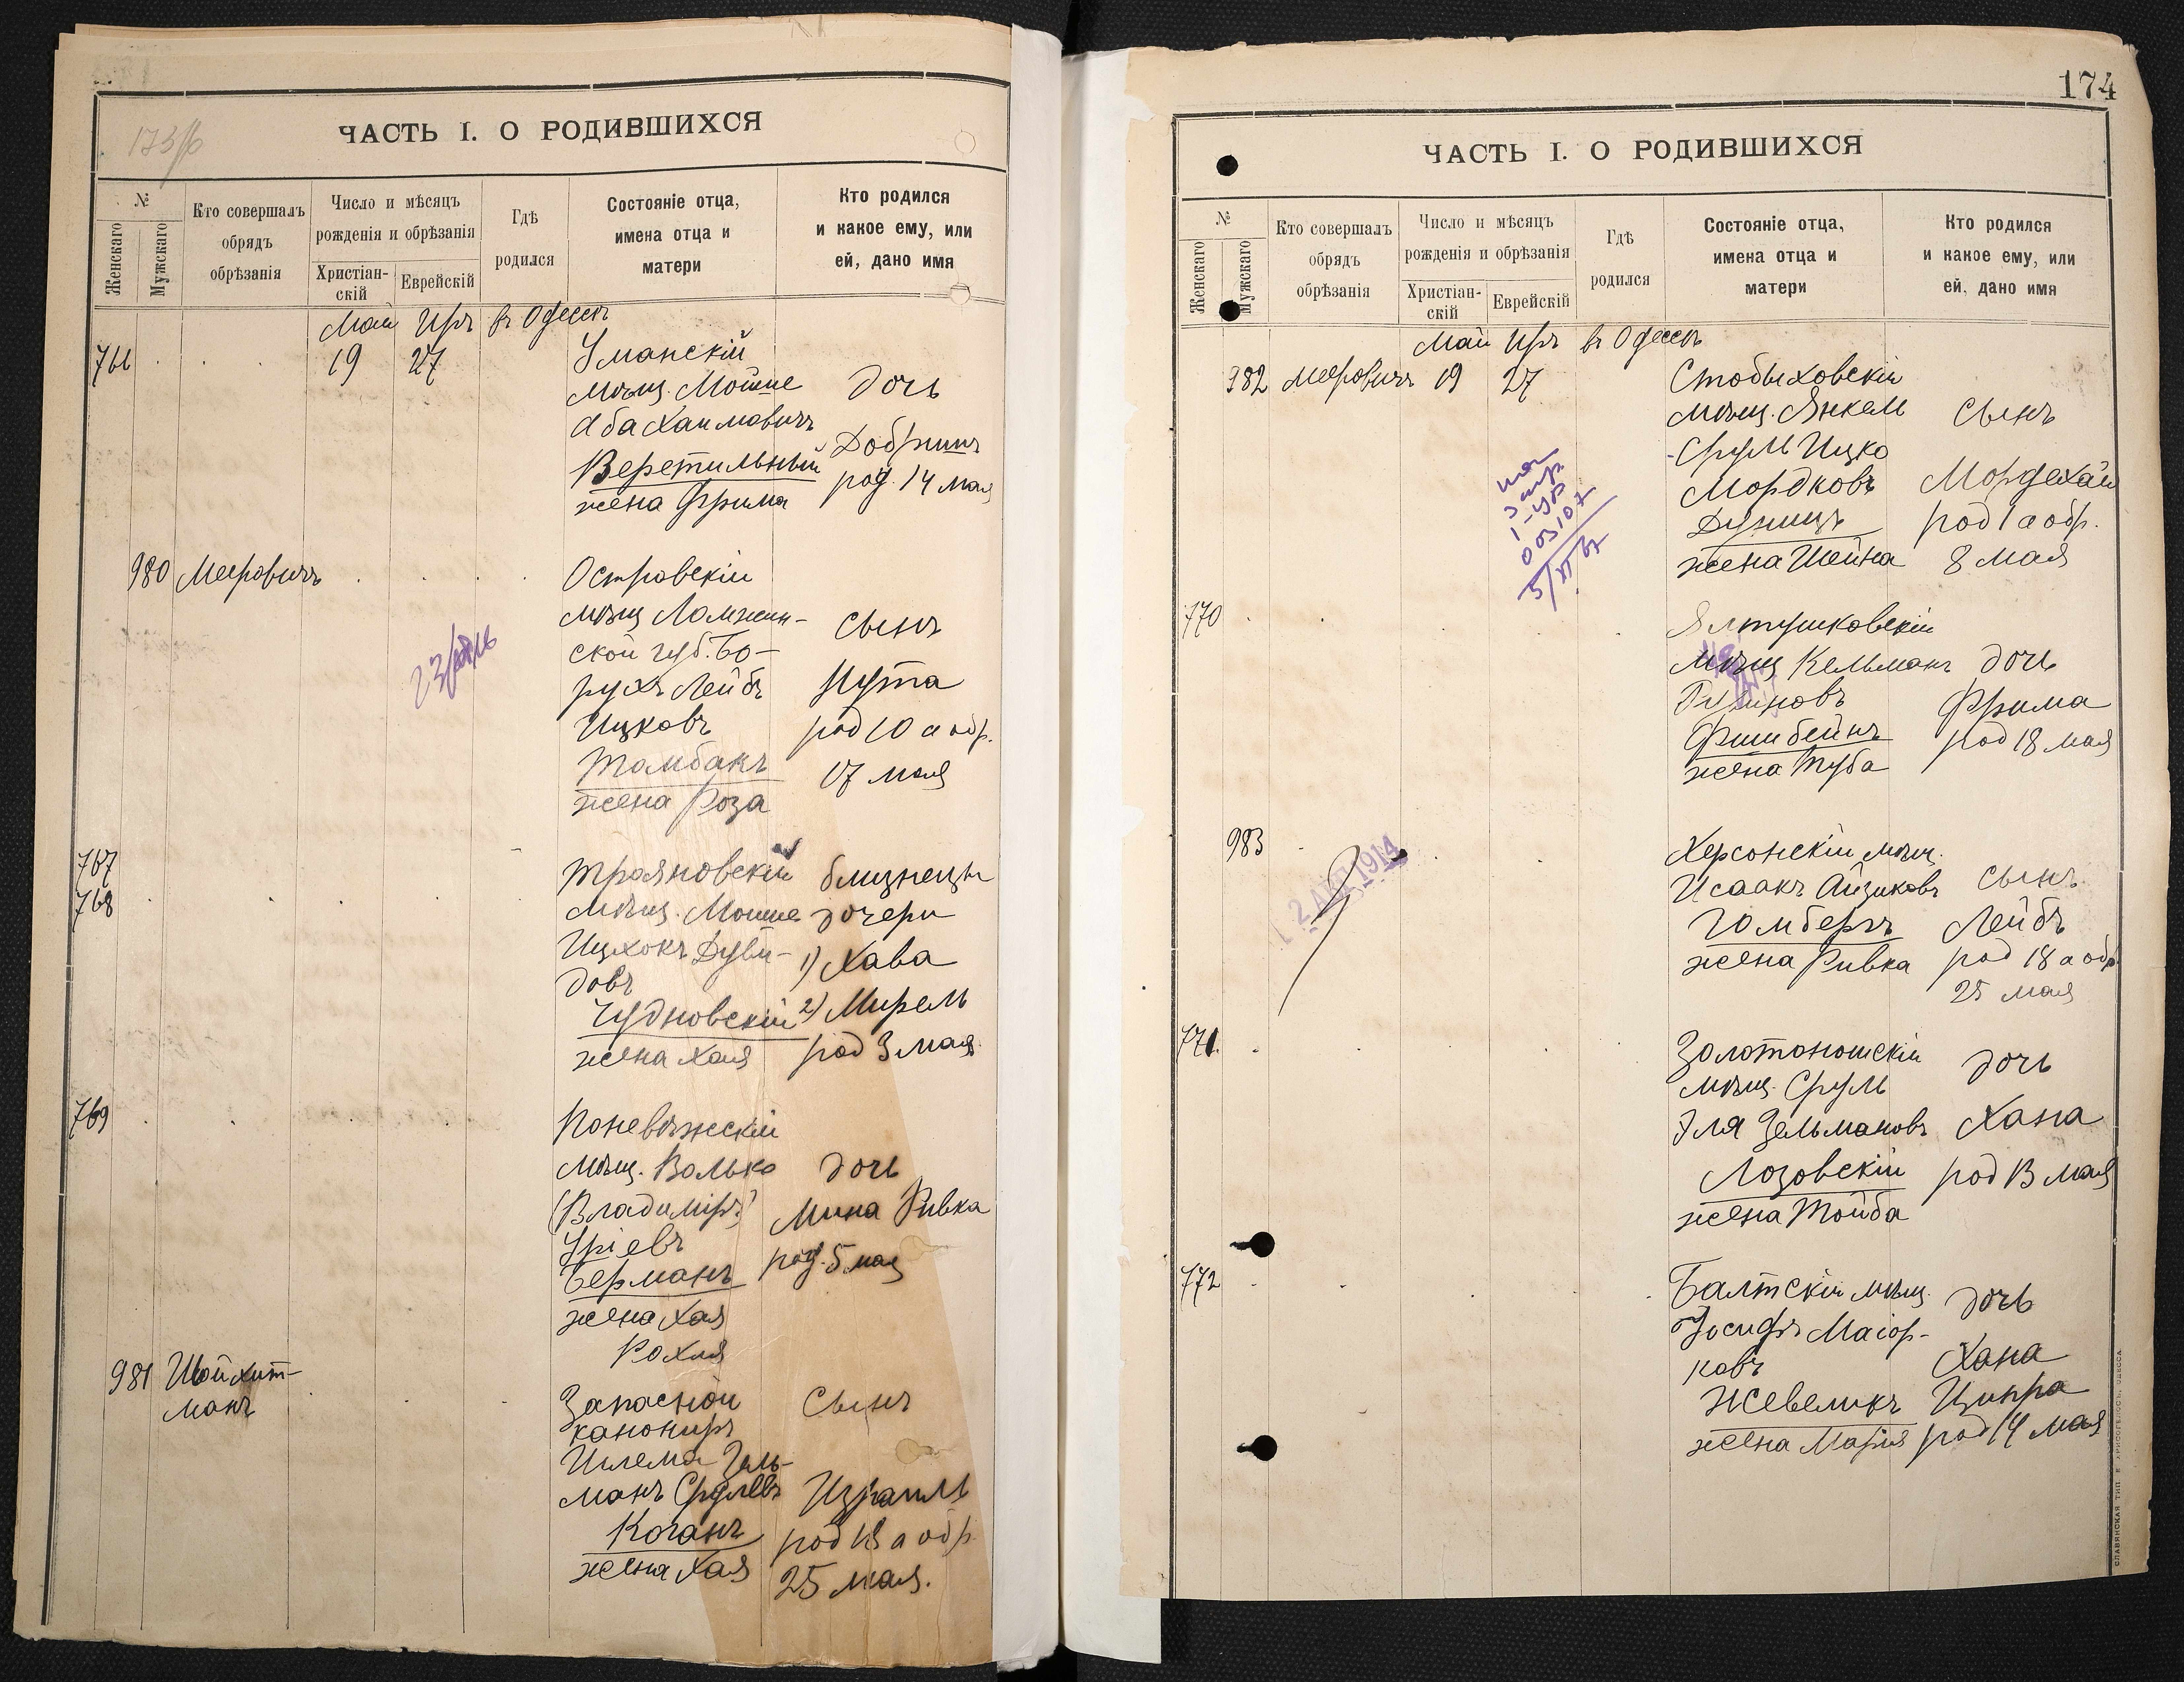 173/б
ЧАСТЬ I. О РОДИВШИХСЯ
№
Женскаго
Мужскаго
Кто совершалъ
обрядъ
обрѣзанія
Число и мѣсяцъ
рожденія и обрѣзанія
Христіан-
скій
Еврейскій
Гдѣ
родился
Состояніе отца,
имена отца и
матери
Кто родился
и какое ему, или
ей, дано имя
Май Иръ въ Одессѣ
766 19 27 Уманскій
мѣщ. Мойше дочь
Аба Хаимовичъ
Веретильный род. 14 мая
жена Фрима
980 Мееровичъ Островскій
мѣщ Ломжин- сынъ
ской губ. Бо-
рухъ Лейбъ Нута
Ицковъ род 10 а обр.
Томбакъ 17 мая
жена Роза
767
768
Трояновскій близнецы
мѣщ. Мошке дочери
Ицхокъ Дуви- 1) Хава
довъ
Чудновскій 2) Мирель
жена Хая род 3 мая
769
Поневѣжскій
мѣщ. Волько дочь
(Владиміръ) Мина Ривка
Уріевъ
Берманъ род. 5 мая
жена Хая
Рохля
981 Шойхит-
манъ
Запасной сынъ
канониръ
Шлема Зель-
манъ Срулевъ Израиль
Коганъ род 18 а обр
жена Хая 25 мая.
174
ЧАСТЬ I. О РОДИВШИХСЯ
№
Женскаго
Мужскаго
Кто совершалъ
обрядъ
обрѣзанія
Число и мѣсяцъ
рожденія и обрѣзанія
Христіан-
скій
Еврейскій
Гдѣ
родился
Состояніе отца,
имена отца и
матери
Кто родился
и какое ему, или
ей, дано имя
Май Иръ въ Одессѣ
982 Мееровичъ 19 27 Стобыховскій
мѣщ. Янкель сынъ
Сруль Ицко
Мордковъ Мордехай
Дуницъ род 1 а обр.
жена Шейна 8 мая
770 Ялтушковскій
мѣщ Кельманъ дочь
Фрима
Фишбейнъ род 18 мая
жена Туба
983 Херсонскій мѣщ.
Исаакъ Айзиковъ сынъ
Гомбергъ Лейбъ
жена Ривка род 18 а обр
25 мая
771. Золотоношскій дочь
мѣщ. Сруль
Эля Зельмановъ Хана
Лозовскій род 13 мая
жена Тойба
772 Балтскій мѣщ. дочь
Іосифъ Маіор-
ковъ Хана
Жевеликъ Ципра
жена Марія род 14 мая